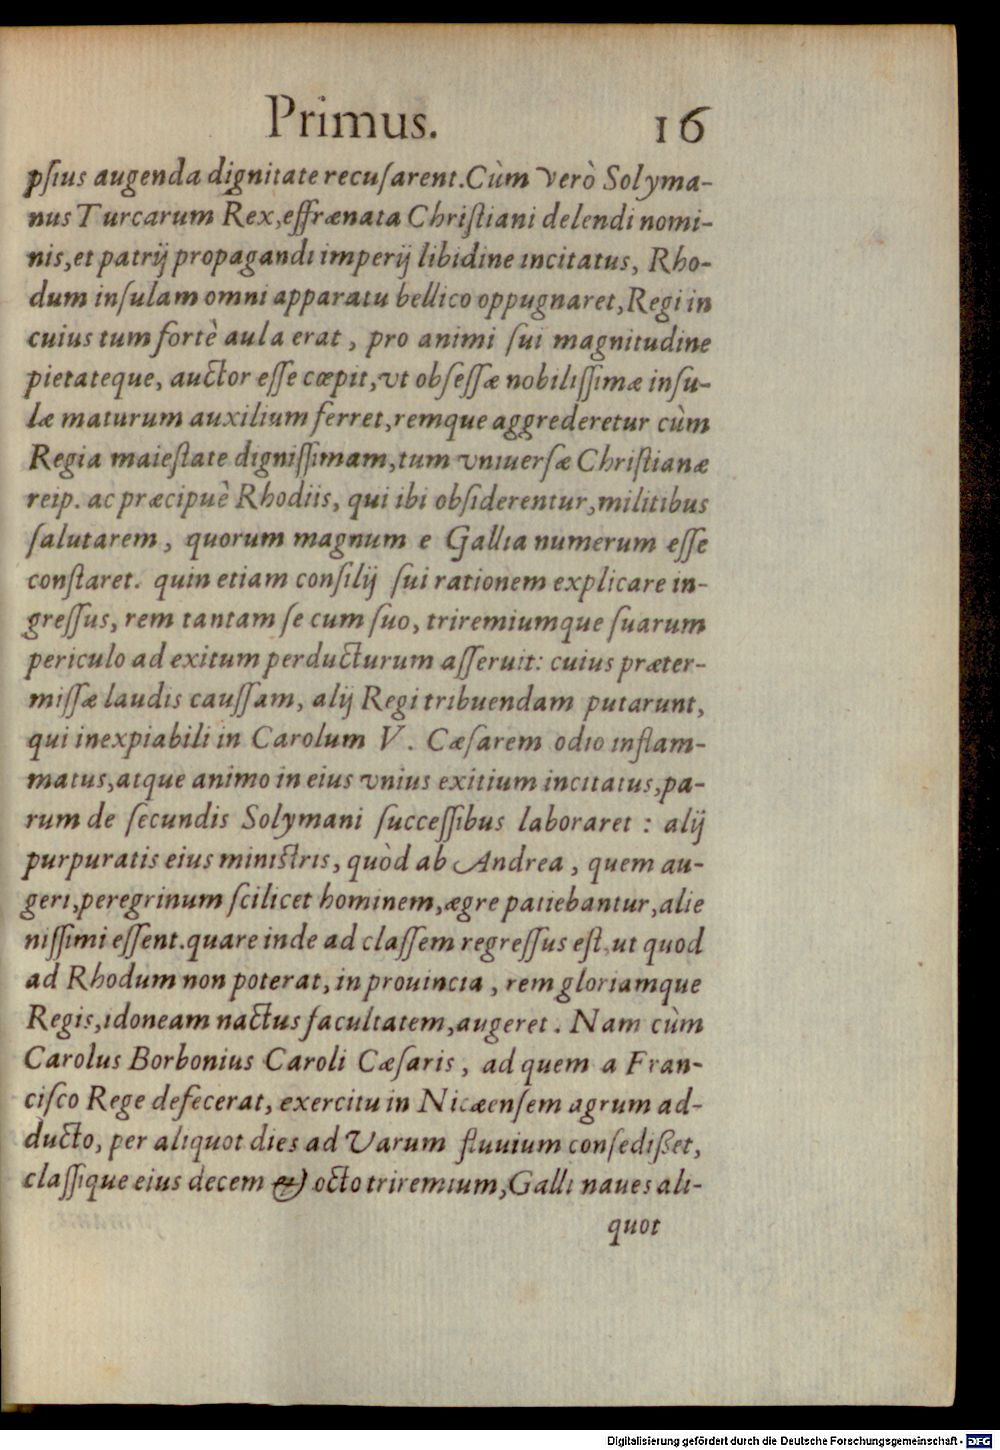 Primus. 16
pſius augenda dignitate recuſarent. Cùm verò Solyma-
nus Turcarum Rex, effrænata Chriſtiani delendi nomi-
nis, et patrij propagandi imperij libidine incitatus, Rho-
dum inſulam omni apparatu bellico oppugnaret, Regi in
cuius tum fortè aula erat, pro animi ſui magnitudine
pietateque, auctor eſſe cœpit, vt obſeſſæ nobiliſſimæ inſu-
læ maturum auxilium ferret, remque aggrederetur cùm
Regia maieſtate digniſſimam, tum vniuerſæ Chriſtianæ
reip. ac præcipuè Rhodiis, qui ibi obſiderentur, militibus
ſalutarem, quorum magnum e Gallia numerum eſſe
conſtaret. quin etiam conſilij ſui rationem explicare in-
greſſus, rem tantam ſe cum ſuo, triremiumque ſuarum
periculo ad exitum perducturum aſſeruit: cuius præter-
miſſæ laudis cauſſam, alij Regi tribuendam putarunt,
qui inexpiabili in Carolum V. Cæſarem odio inflam-
matus, atque animo in eius vnius exitium incitatus, pa-
rum de ſecundis Solymani ſucceſſibus laboraret : alij
purpuratis eius miniſtris, quòd ab Andrea, quem au-
geri, peregrinum ſcilicet hominem, ægre patiebantur, alie
niſſimi eſſent. quare inde ad claſſem regreſſus eſt, ut quod
ad Rhodum non poterat, in prouincia, rem gloriamque
Regis, idoneam nactus facultatem, augeret. Nam cùm
Carolus Borbonius Caroli Cæſaris, ad quem a Fran-
ciſco Rege defecerat, exercitu in Nicæenſem agrum ad-
ducto, per aliquot dies ad Varum fluuium conſedißet,
claſſique eius decem & octo triremium, Galli naues ali-
quot
Digitalisierung gefördert durch die Deutsche Forschungsgemeinschaft - DFG